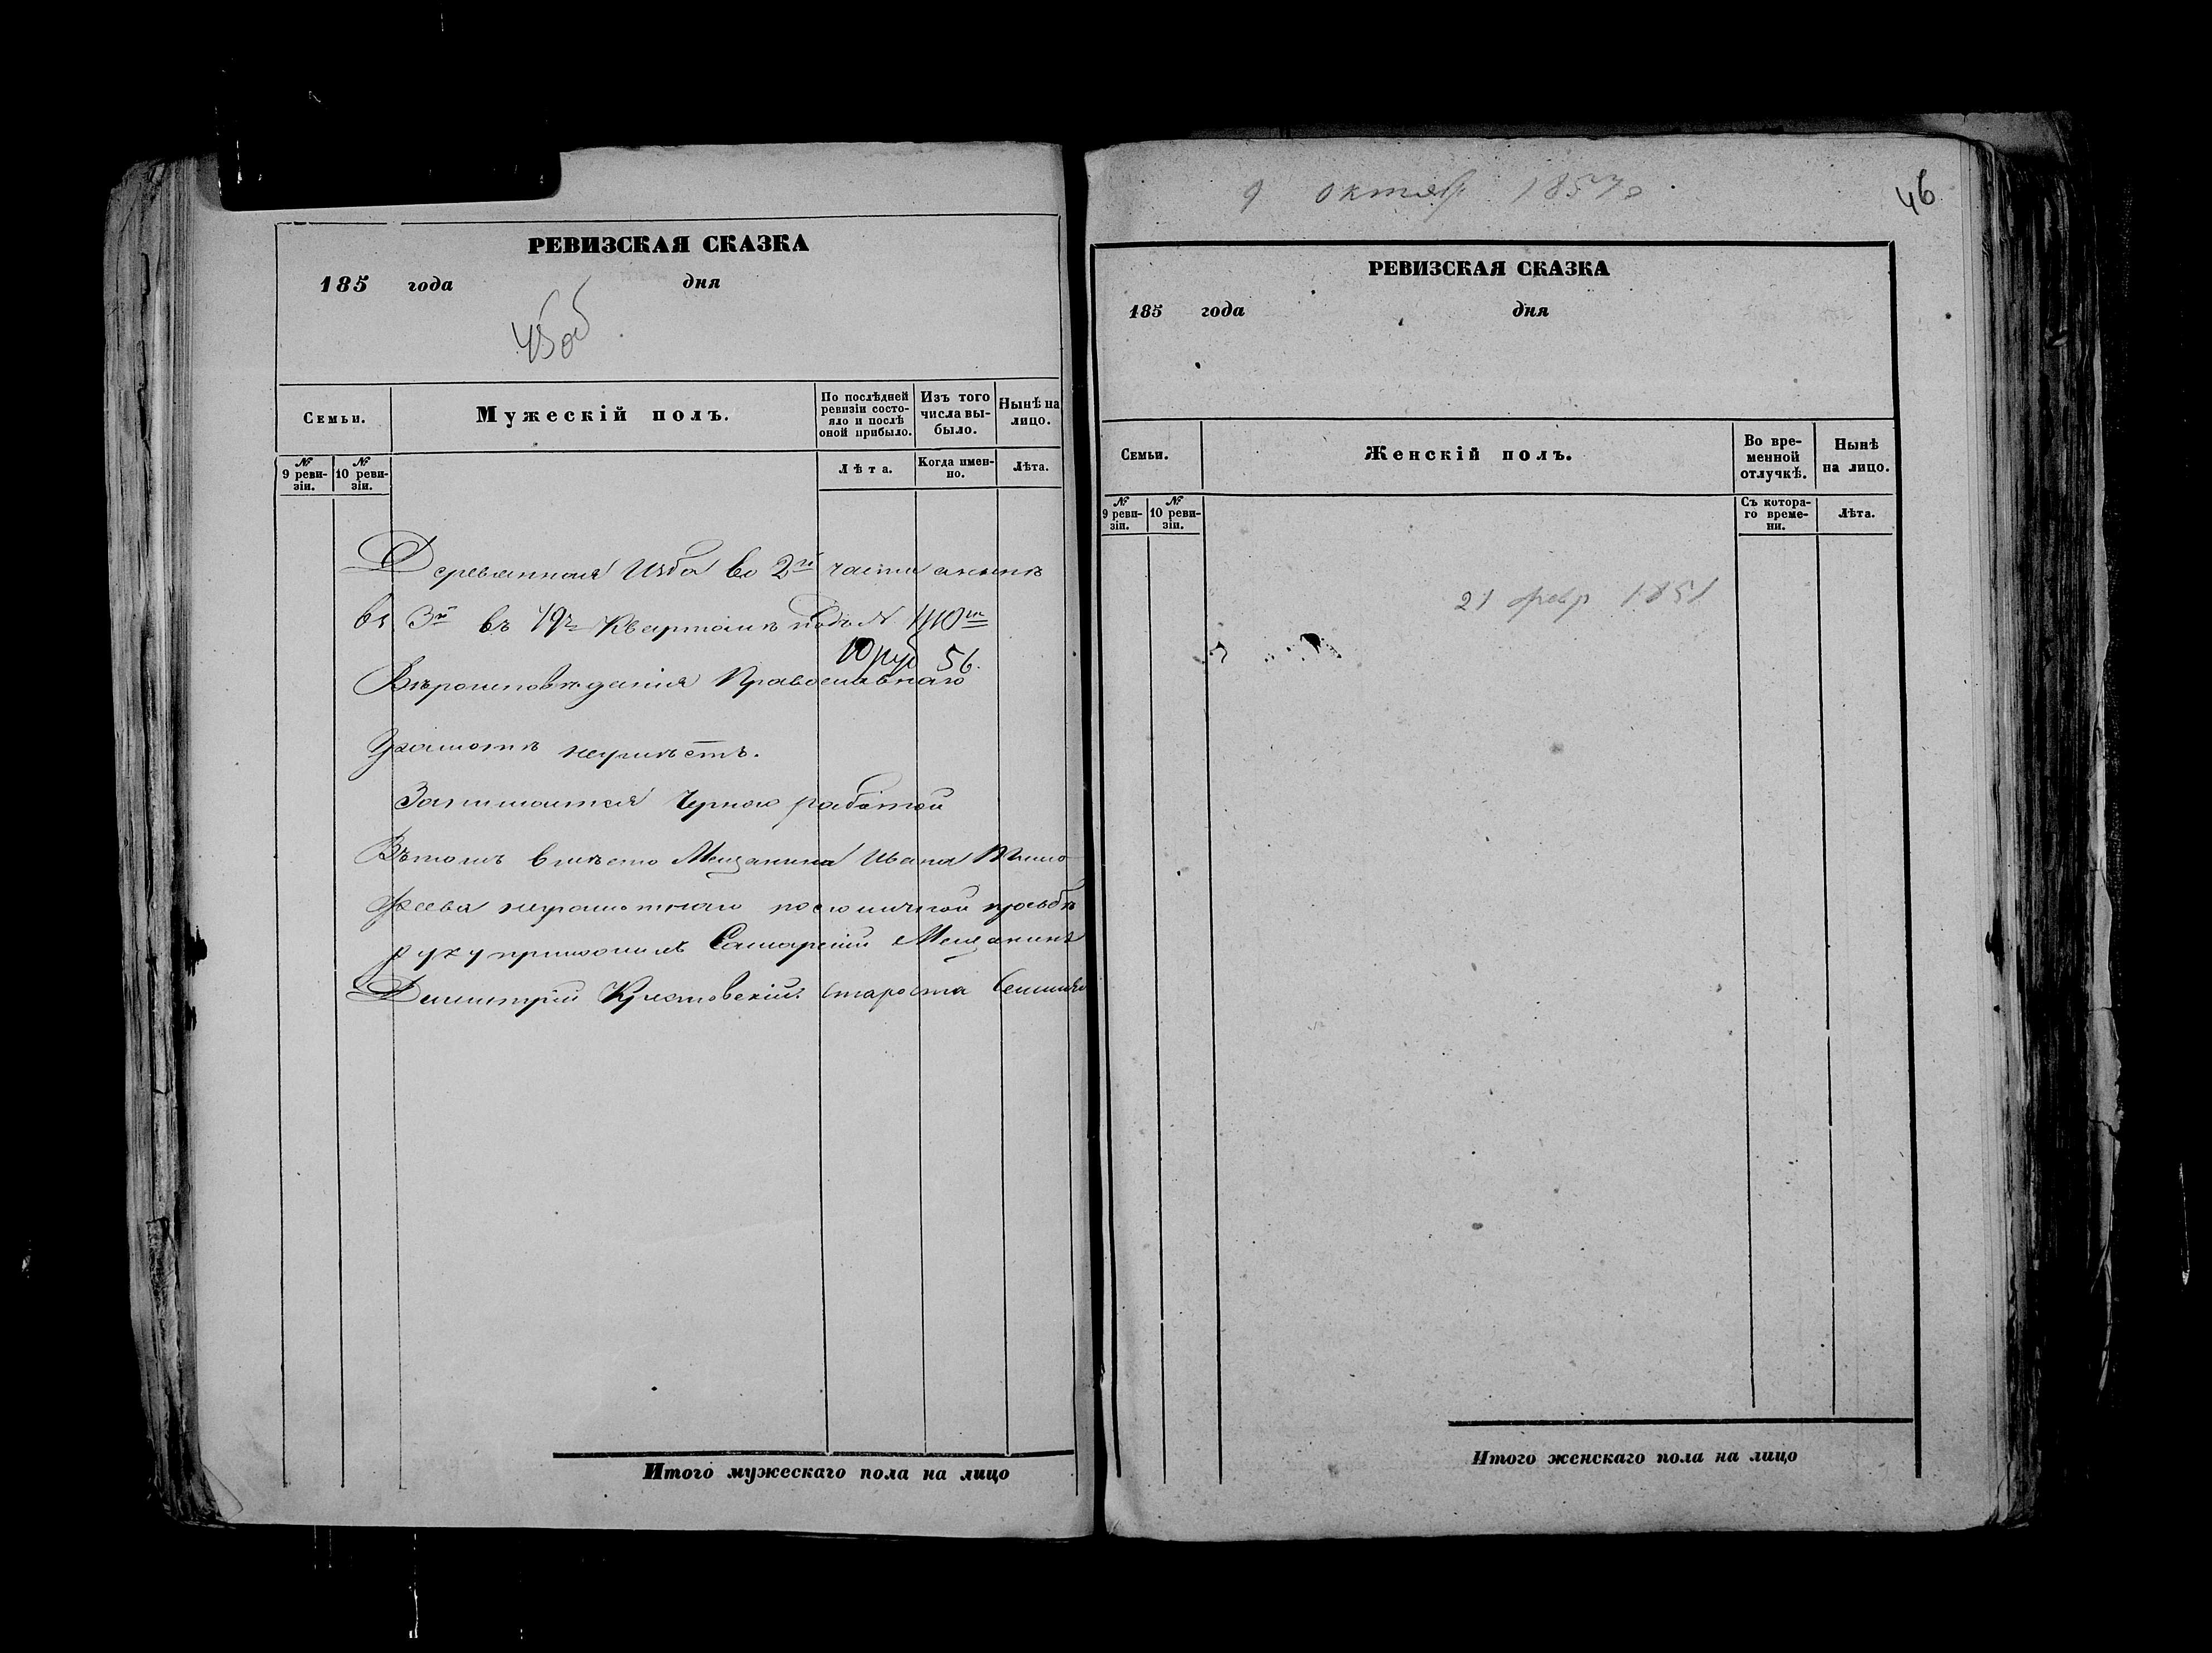 РЕВИЗСКАЯ СКАЗКА
185 года дня
45об
Семьи. Мужескій полъ. По послѣдней ревизіи состояло и послѣ оной прибыло. Изъ того числа выбыло. Нынѣ на лицо.
№ 9 ревизіи. № 10 ревизіи. Лѣта. Когда именно. Лѣта.
Деревянная Изба во 2й части а нынѣ
въ 3й въ 79 Кварталѣ подъ №
10 руб 56
Вѣроисповѣданія Православнаго
Грамотѣ неумѣетъ.
Занимается Черною работой
Вътомъ вмѣсто Мещанина Ивана Тимо
феева неграмотнаго поеголичной прозьбѣ
руку приложилъ Самарскій Мещанинъ
Димитрій Крестовскій староста
Итого мужескаго пола на лицо
9 октябр 1857
46
РЕВИЗСКАЯ СКАЗКА
185 года дня
Семьи. Женскій полъ. Во временной отлучкѣ. Нынѣ на лицо.
№ 9 ревизіи. № 10 ревизіи. Съ котораго времени. Лѣта.
21 февр 1851
Итого женскаго пола на лицо